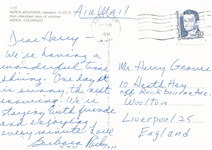 AIR MAIL
Dear Harry -
We're having a
wonderful time
skiing. One day it
is sunny, the next
snowing. We're
staying with friends
and enjoying
every minute here
Barbara
Mr Harry Graves
10 Heath Hey
off Rockbourne Ave.
Woolton
Liverpool 25
England
40